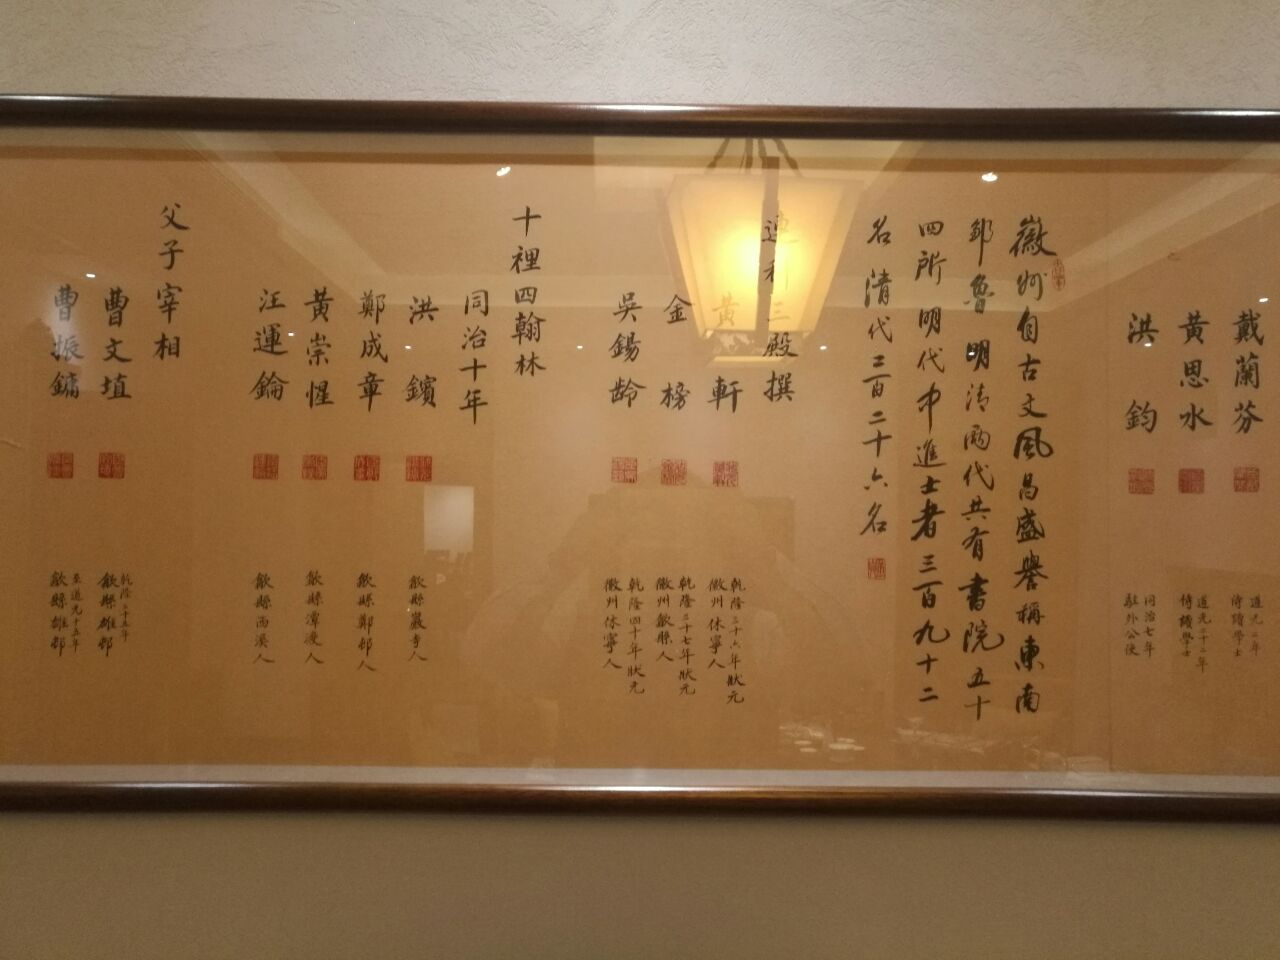 戴蘭芬
道光二年
侍讀學士
黃思水
道光二十二年
侍讀學士
洪鈞
同治七年
駐外公使
徽州自古文風昌盛譽稱東南
鄒魯明清兩代共有書院五十
四所明代中進士者三百九十二
名清代二百二十六名
連科三殿撰
黃軒
乾隆三十六年狀元
徽州休寧人
金榜
乾隆三十七年狀元
徽州歙縣人
吳錫齡
乾隆四十年狀元
徽州休寧人
十裡四翰林
同治十年
洪鑌
歙縣巖寺人
鄭成章
歙縣鄭邨人
黃崇惺
歙縣潭渡人
汪運錀
歙縣西溪人
父子宰相
曹文埴
乾隆二十五年
歙縣雄邨
曹振鏞
至道光十五年
歙縣雄邨